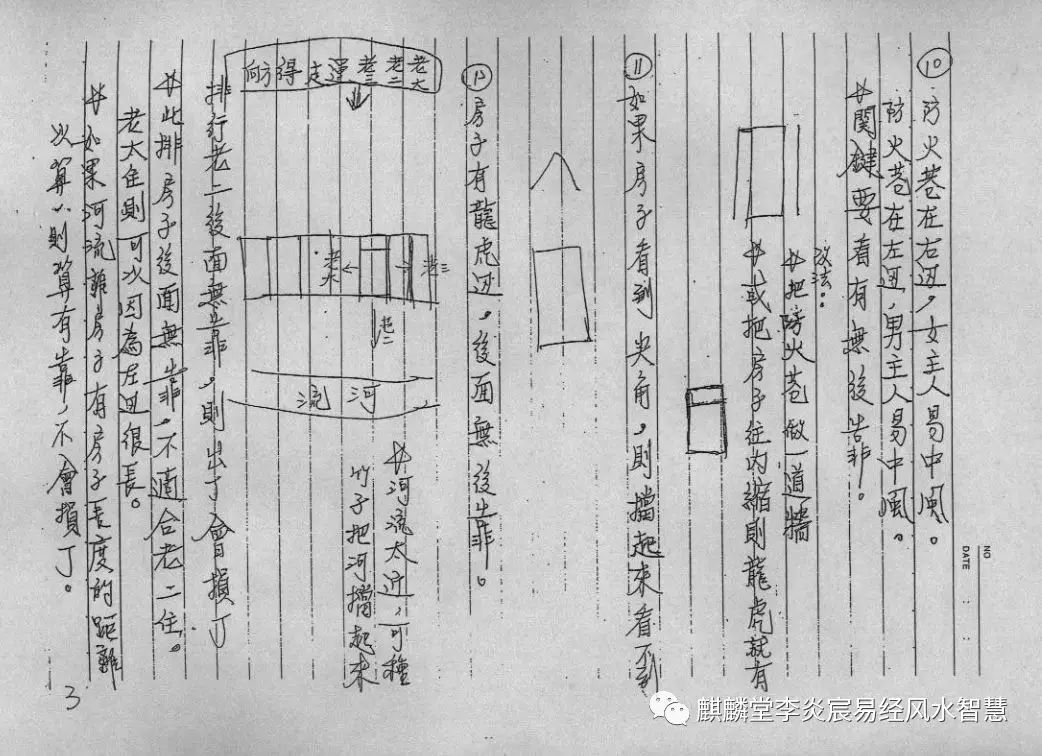 ⑩ 防火巷在右边，女主人易中風。
防火巷在左边，男主人易中風。
#關鍵要看有無後告靠。
改法：
#把防火巷做一道牆
#或把房子往内縮則龍虎就有
⑪ 如果房子看到尖角，則擋起來看不到
⑫ 房子有龍虎边，後面無後靠。
老大 老二 老三 運走得方向
老大
老三
老二
河流
#河流太近，可種
竹子把河擋起來
排行老二後面無靠，則出丁會損丁
#此排房子後面無靠，不適合老二住。
老大住則可以因為左边很長。
#如果河流離房子有房子長度的距離
以算則算有靠，不會損丁。
NO
DATE
3
麒麟堂李炎宸易经风水智慧